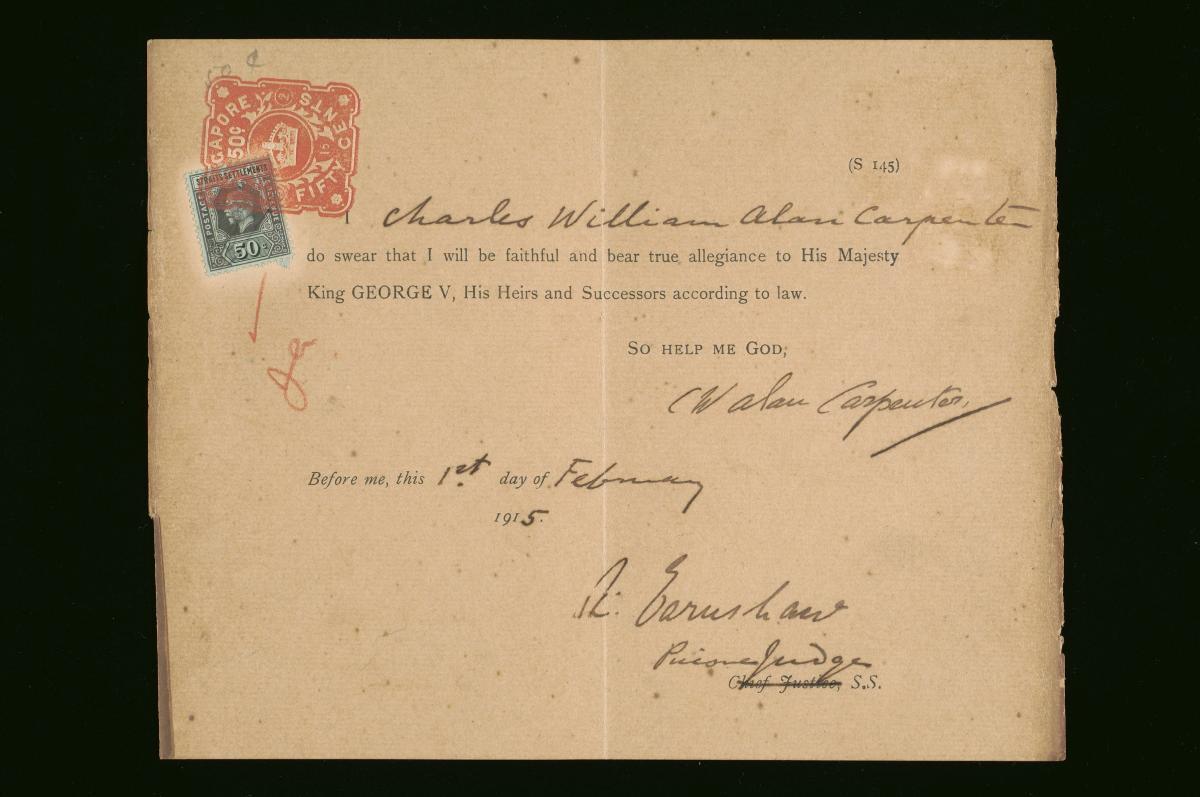 50 ¢
SINGAPORE FIFTY CENTS
50¢
2
15
STRAITS SETTLEMENTS
POSTAGE
50c
(S 145)
I Charles William Alan Carpenter
do swear that I will be faithful and bear true allegiance to His Majesty
King GEORGE V, His Heirs and Successors according to law.
SO HELP ME GOD,
CW Alan Carpenter.
Before me, this 1st. day of February
1915.
Earnshaw
Puisne Judge
Chief Justice, S.S.